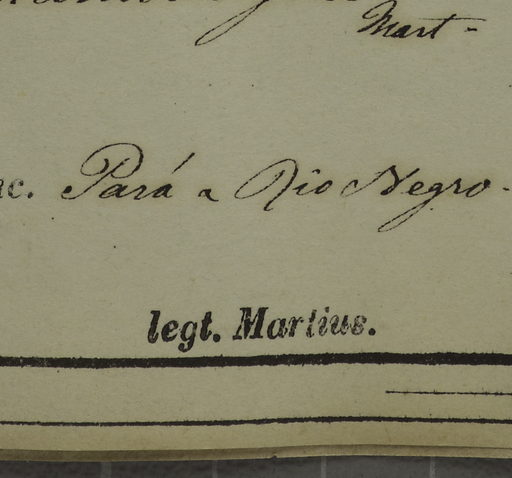 Mart-
Pará a Rio Negro.
legt. Martius.